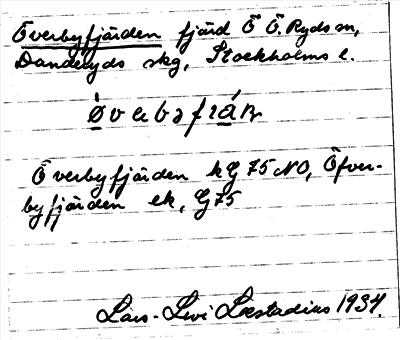 Överbyfjärden fjärd Ö Ö. Ryds sn,
Danderyds skg, Stockholms l.
Överbyfjärden kG 75 NO, Öfver-
byfjärden ek, G75
Lars-Levi Læstadius 1934.